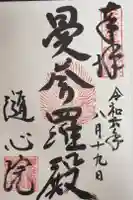 奉拝
令和六年
月十九日
曼荼羅殿
随心院